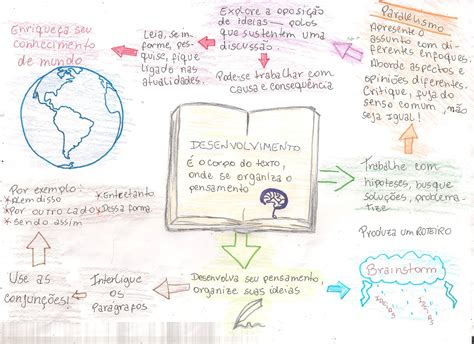 Enriqueça seu
conhecimento
de mundo
Leia, se in-
forme, pes-
quise, fique
ligado nas
atualidades.
Explore a oposição
de ideias — polos
que sustentem uma
discussão.
Pode-se trabalhar com
causa e consequência
Paralelismo
Apresente o
assunto com di-
ferentes enfoques.
Aborde aspectos e
opiniões diferentes.
Critique, fuja do
senso comum, não
seja igual!
DESENVOLVIMENTO
É o corpo do texto,
onde se organiza o
pensamento
Trabalhe com
hipóteses, busque
soluções, problema-
tize
Produza um ROTEIRO
Brainstorm
Desenvolva seu pensamento,
organize suas ideias
Interligue
os
Parágrafos
Use as
conjunções!
Por exemplo:
*Além disso
*Entretanto
*Por outro lado
*Dessa forma
*Sendo assim